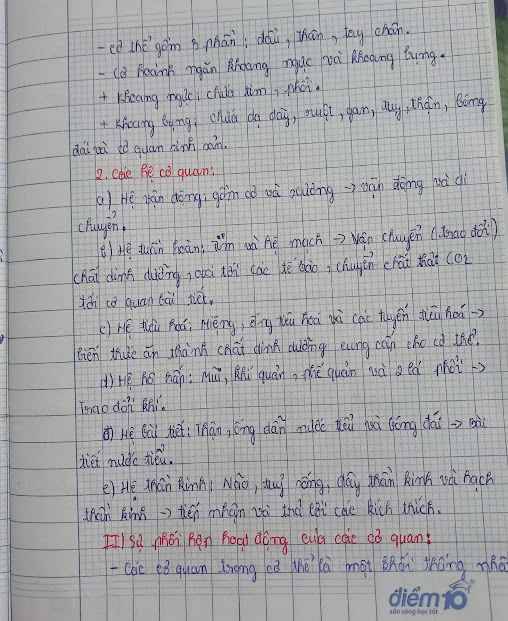 - Cơ thể gồm 3 phần: đầu, thân, tay chân.
- Cơ hoành ngăn khoang ngực và khoang bụng.
+ Khoang ngực: chứa tim, phổi.
+ Khoang bụng: chứa dạ dày, ruột, gan, tụy, thận, bóng
đái và cơ quan sinh sản.
2. Các hệ cơ quan:
a) Hệ vận động: gồm cơ và xương → vận động và di
chuyển.
b) Hệ tuần hoàn: tim và hệ mạch → Vận chuyển (trao đổi)
chất dinh dưỡng, oxi tới các tế bào, chuyển chất thải CO2
tới cơ quan bài tiết.
c) Hệ tiêu hoá: Miệng, ống tiêu hoá và các tuyến tiêu hoá →
biến thức ăn thành chất dinh dưỡng cung cấp cho cơ thể.
d) Hệ hô hấp: Mũi, khí quản, phế quản và 2 lá phổi →
Trao đổi khí.
đ) Hệ bài tiết: Thận, ống dẫn nước tiểu và bóng đái → bài
tiết nước tiểu.
e) Hệ thần kinh: Não, tuỷ sống, dây thần kinh và hạch
thần kinh → tiếp nhận và trả lời các kích thích.
II) Sự phối hợp hoạt động của các cơ quan:
- Các cơ quan trong cơ thể là một khối thống nhấ
điểm10
sẵn sàng học tốt